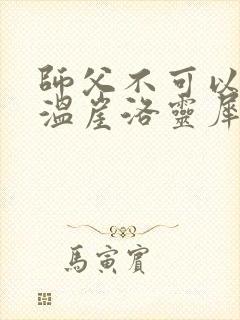 師父不可以
溫崖洛靈犀
馬寅賓